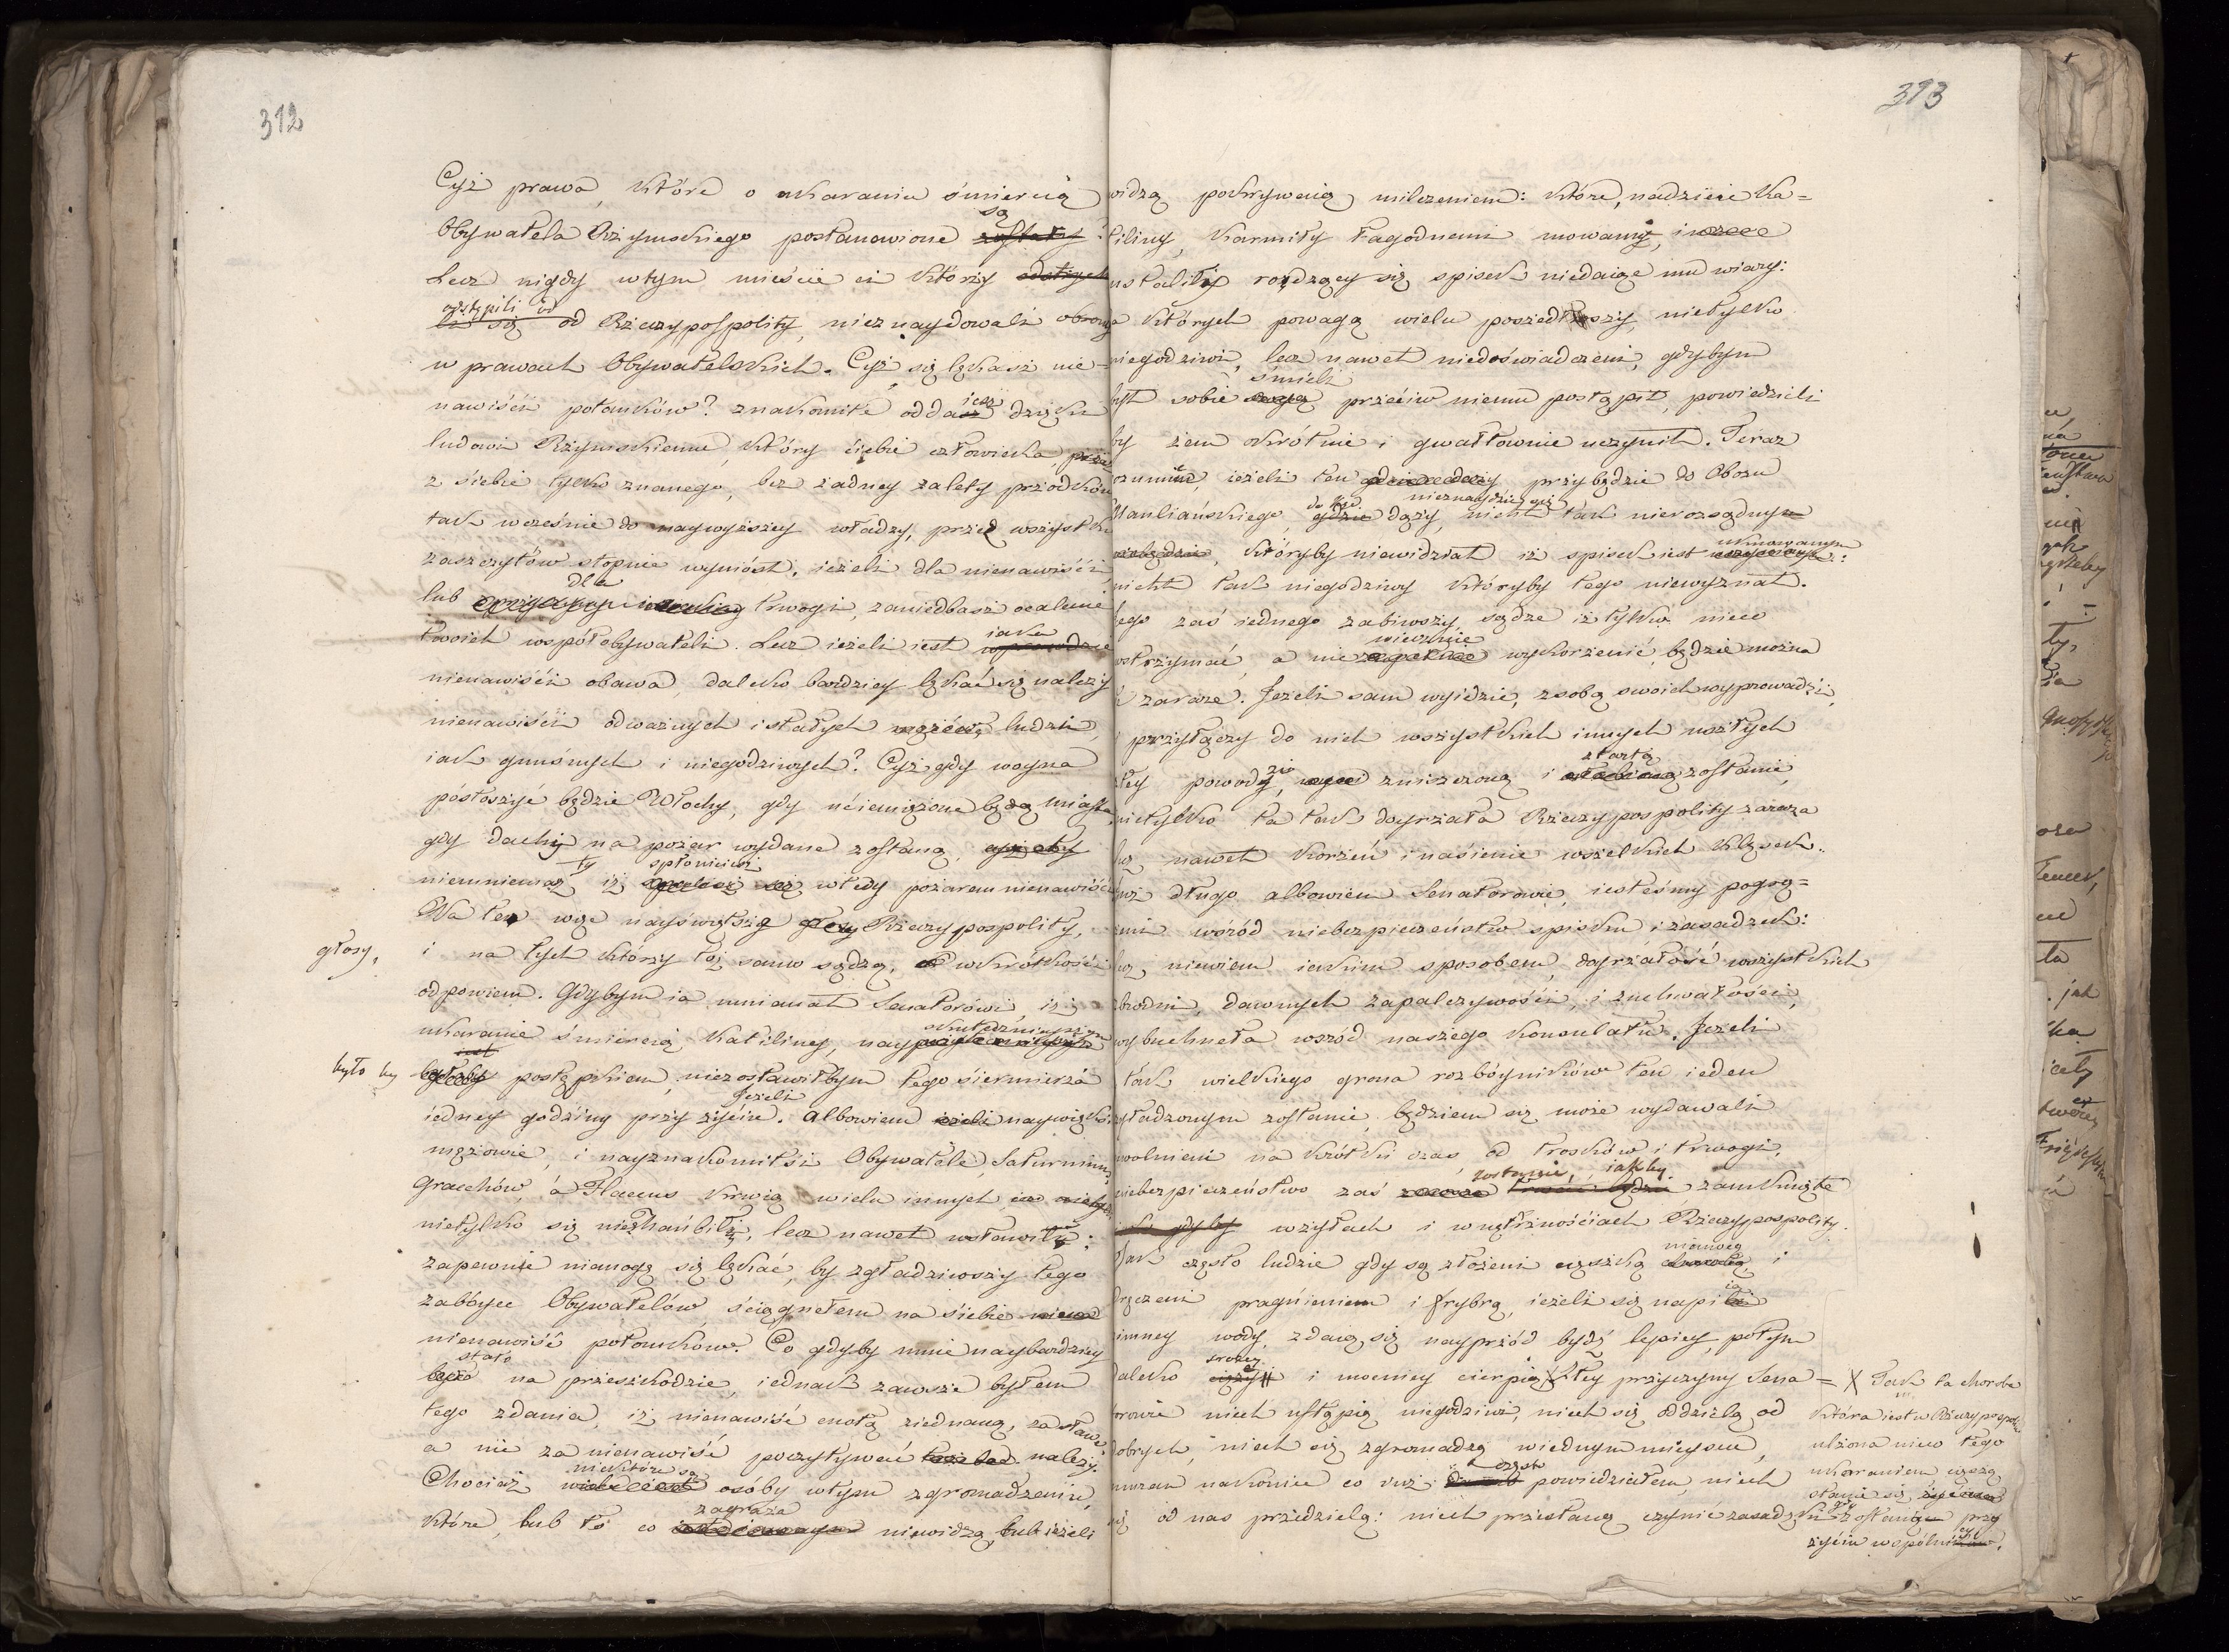 312
Cyż prawa, które o ukaraniu śmiercią
Obywatela Rzymskiego postanowione są zostały?
Lecz nigdy wtym mieście ci którzy
odstąpili od
się od Rzeczypospolity, nieznaydowali obrony
w prawach Obywatelskich. Cyż się lękasz nie-
nawiści potomków? znakomite oddaiesz dzięki
ludowi Rzymskiemu, który ciebie człowieka przez
z siebie tylko znanego, bez żadney zalety przodków
tak wcześnie do naywyższey władzy, przez wszystkie
zaszczytów stopnie wyniósł, ieżeli dla nienawiści
lub dla trwogi, zaniedbasz ocalenie
twoich współobywateli. Lecz ieżeli iest iaka
nienawiści obawa, daleko bardziey lękać się należy
nienawiści odważnych i stałych mężów, ludzi,
iak gnuśnych i niegodziwych? Cyż gdy woyna
pustoszyć będzie Włochy, gdy uciemiężone będą miasta,
gdy dachy na pożar wydane zostaną,
niemniemasz ty iż spłoniesz wtedy pożarem nienawiści
Na te więc nayświętsze głosy Rzeczypospolity,
głosy,
i na tych którzy toż samo sądzą, wkrótkości
odpowiem. Gdybym ia mniemał Senatorowie, iż
ukaranie śmiercią Katiliny, nay skutecznieyszym
było by
iest
byłoby postępkiem, niezostawiłbym tego siermierza
iedney godziny przy życiu. Albowiem Jeżeli ieżeli naywięksi
mężowie, i nayznakomitsi Obywatele, Saturnina,
Gracchów, a Flaccus krwią wielu innych
nietylko się niezhańbili, lecz nawet wsławili;
zapewnie niemogę się lękać, by zgładziwszy tego
zabóycę Obywatelów, ściągnełem na siebie
nienawiść potomków. Co gdyby mnie naybardziey
stało
było na przeszkodzie, iednak zawsze byłem
tego zdania, iż nienawiść cnotą ziednaną, za sławę
a nie za nienawiść poczytywać należy.
Chociaż niektóre są osóby wtym zgromadzeniu,
które, lub to co zagraża niewidzą, lub ieżeli
313
widzą pokrywaią milczeniem: które, nadzieie Ka=
tiliny, karmiły łagodnemi mowami, i
ustaliły rodzący się spisek niedaiąc mu wiary:
których powagą wielu poszedłszy, nietylko
niegodziwi, lecz nawet niedoświadczeni, gdybym
był sobie śmieli przeciw niemu postąpił, powiedzieli
by żem okrótnie i gwałtownie uczynił. Teraz
rozumiem, ieżeli ten przybędzie do Obozu
Manliańskiego, do kąd gdzie dąży, nieznaydzie się nicht tak nierozsądnym
niebędzie, któryby niewidział iż spisek iest uknowanym:
nicht tak niegodziwy któryby tego niewyznał.
tego zaś iednego zabiwszy, sądzę iż tylko nieco
wstrzymać, a nie wiecznie zupełnie wykorzenić będzie można
tę zarazę. Jeżeli sam wyidzie, zsobą swoich wyprowadzi,
i przyłączy do nich wszystkich innych uszłych
złey powodzi, zniszczoną i startą zostanie,
nietylko ta tak doyrzała Rzeczypospolity zaraza
lecz nawet korzeń i nasienie wszelkich klęsek.
iuż długo albowiem Senatorowie, iesteśmy pogrą=
żeni wśród niebezpieczeństw spisku i zasadzek:
lecz niewiem iakim sposobem, doyrzałość wszystkich
zbrodni, dawnych zapalczywości, i zuchwałości,
wybuchneła wsród naszego konsulatu. Jeżeli
z tak wielkiego grona rozbóyników ten ieden
zgładzonym zostanie, będziem się może wydawali
uwolnieni na krótki czas od trosków i trwogi,
niebezpieczeństwo zaś zostanie, iakby zamknięte
gdyby wżyłach i wnętrznościach Rzeczypospolity.
Jak często ludzie gdy są złożeni cięszką niemocą i
dręczeni pragnieniem i frybrą, ieżeli się napiią
zimney wody, zdaią się nayprzód bydź lepiey, potym
daleko srożey ciężey i mocniey cierpią X Z tey przyczyny Sena=
torowie niech ustąpią niegodziwi, niech się oddzielą od
dobrych, niech się zgromadzą wiednym mieyscu,
murem nakoniec co iuż często powiedziałem, niech
się od nas przedzielą: niech przestaną czynić zasadzki
X Tak ta choroba
która iest w Rzeczypospol:
ulżona nieco tego
ukaraniem, cięszą
stanie się,
gdy zostaną przy
życiu wspólnicy.